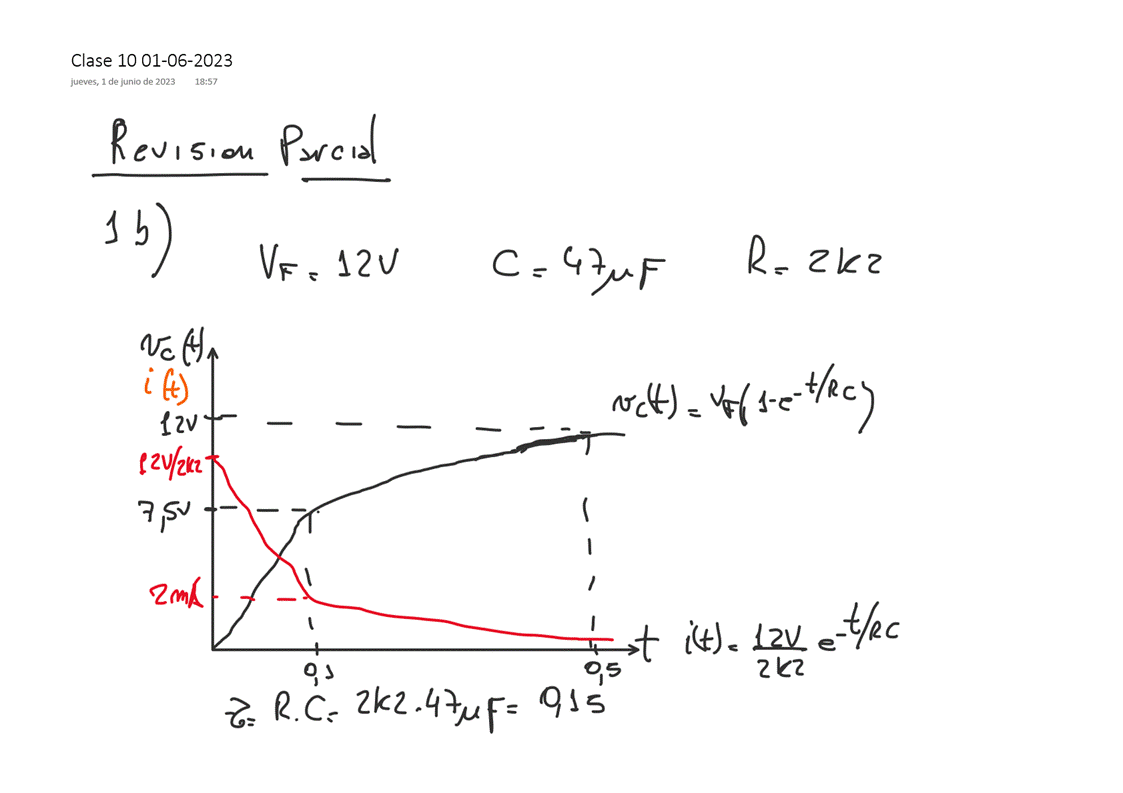 Clase 10 01-06-2023
jueves, 1 de junio de 2023 18:57
Revision Parcial
1b)
VF = 12V C = 47μF R = 2k2
vc(t)
i(t)
12V
vc(t) = VF(1-e-t/RC)
12V/2k2
7,5V
2mA
t
i(t) = 12V/2k2 e-t/RC
0,1 0,5
τ = R.C = 2k2.47μF = 0,1s